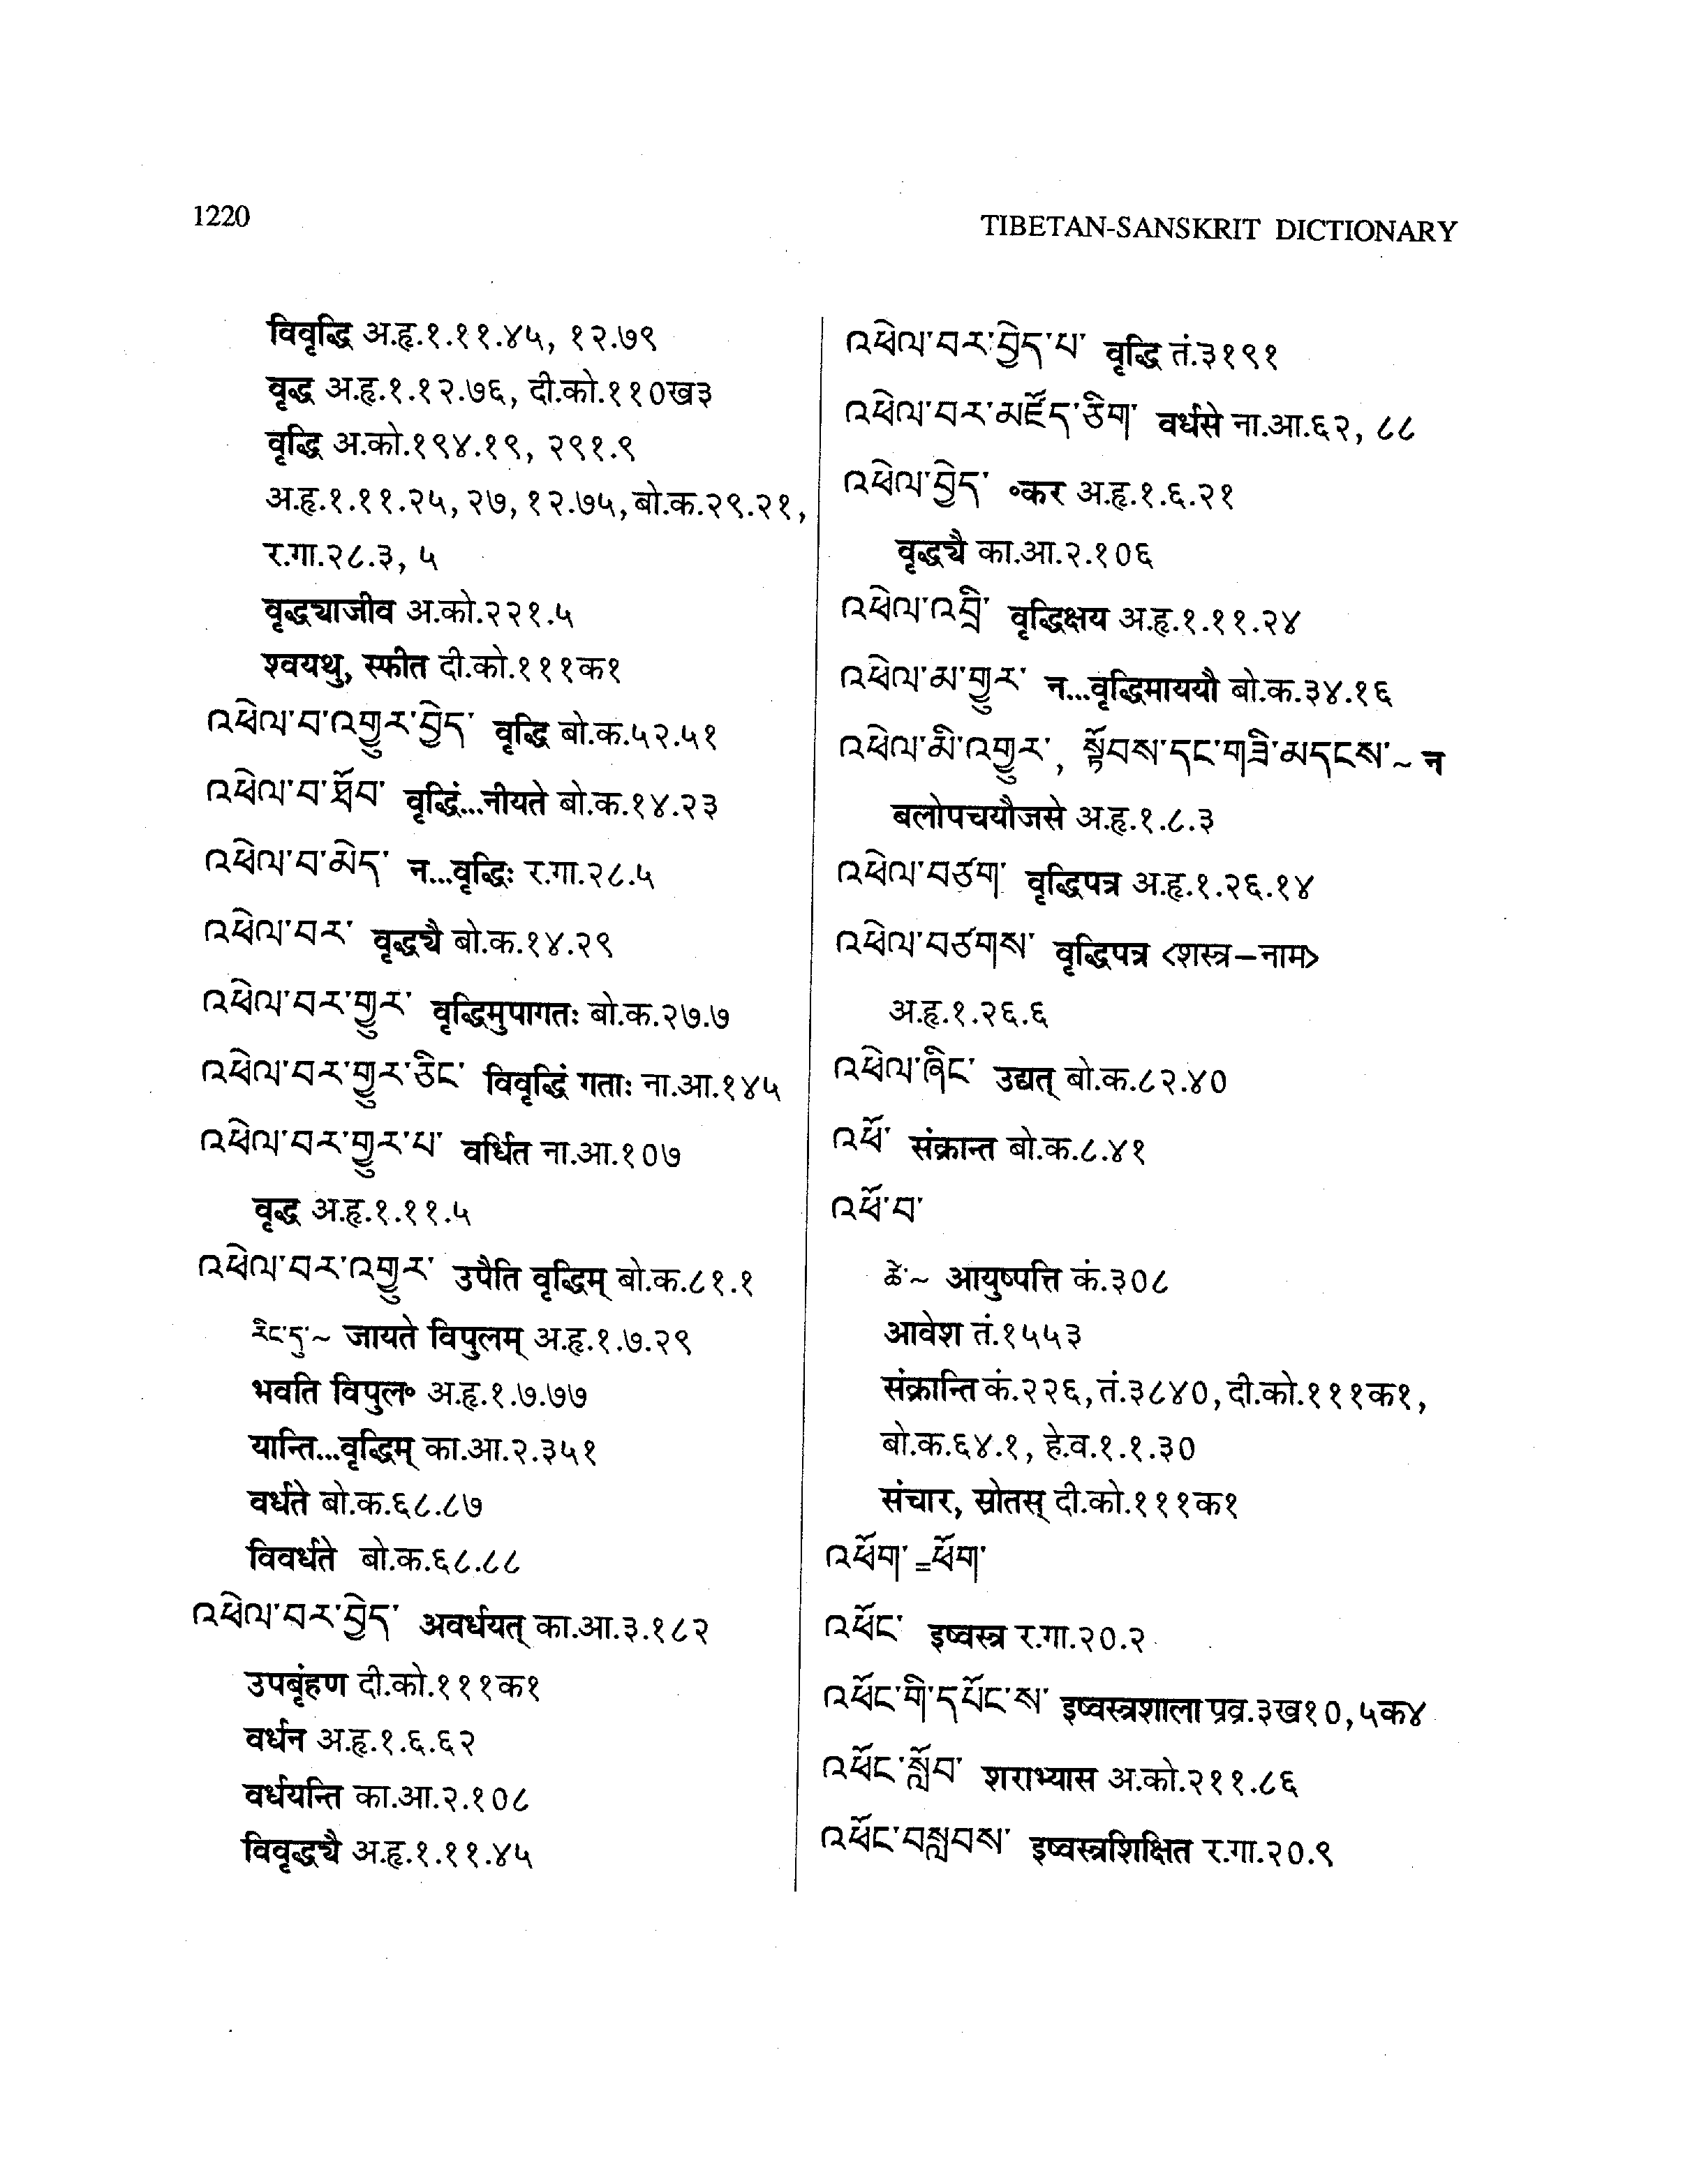 1220
TIBETAN-SANSKRIT DICTIONARY
विवृद्धि अ.हृ.१.११.४५, १२.७९
वृद्ध अ.हृ.१.१२.७६, दी.को.११०ख३
वृद्धि अ.को.१९४.१९, २९१.९
अ.हृ.१.११.२५, २७, १२.७५, बो.क.२९.२१,
र.गा.२८.३, ५
वृद्ध्याजीव अ.को.२२१.५
श्वयथु, स्फीत दी.को.१११क१
འཕེལ་བ་འགྱུར་བྱེད་ वृद्धि बो.क.५२.५१
འཕེལ་བ་ཐོབ་ वृद्धिं...नीयते बो.क.१४.२३
འཕེལ་བ་མེད་ न...वृद्धिः र.गा.२८.५
འཕེལ་བར་ वृद्ध्यै बो.क.१४.२९
འཕེལ་བར་གྱུར་ वृद्धिमुपागतः बो.क.२७.७
འཕེལ་བར་གྱུར་ཅིང་ विवृद्धिं गताः ना.आ.१४५
འཕེལ་བར་གྱུར་པ་ वर्धित ना.आ.१०७
वृद्ध अ.हृ.१.११.५
འཕེལ་བར་འགྱུར་ उपैति वृद्धिम् बो.क.८१.१
རིང་དུ་~ जायते विपुलम् अ.हृ.१.७.२९
भवति विपुल॰ अ.हृ.१.७.७७
यान्ति...वृद्धिम् का.आ.२.३५१
वर्धते बो.क.६८.८७
विवर्धते बो.क.६८.८८
འཕེལ་བར་བྱེད་ अवर्धयत् का.आ.३.१८२
उपबृंहण दी.को.१११क१
वर्धन अ.हृ.१.६.६२
वर्धयन्ति का.आ.२.१०८
विवृद्ध्यै अ.हृ.१.११.४५
འཕེལ་བར་བྱེད་པ་ वृद्धि तं.३१९१
འཕེལ་བར་མཛོད་ཅིག་ वर्धसे ना.आ.६२, ८८
འཕེལ་བྱེད་ ॰कर अ.हृ.१.६.२१
वृद्ध्यै का.आ.२.१०६
འཕེལ་འབྲི་ वृद्धिक्षय अ.हृ.१.११.२४
འཕེལ་མ་གྱུར་ न...वृद्धिमाययौ बो.क.३४.१६
འཕེལ་མི་འགྱུར་, སྟོབས་དང་གཟི་མདངས་~ न
बलोपचयौजसे अ.हृ.१.८.३
འཕེལ་བཙག་ वृद्धिपत्र अ.हृ.१.२६.१४
འཕེལ་བཙགས་ वृद्धिपत्र <शस्त्र–नाम>
अ.हृ.१.२६.६
འཕེལ་ཞིང་ उद्यत् बो.क.८२.४०
འཕོ་ संक्रान्त बो.क.८.४१
འཕོ་བ་
ཚེ་~ आयुष्पत्ति कं.३०८
आवेश तं.१५५३
संक्रान्ति कं.२२६, तं.३८४०, दी.को.१११क१,
बो.क.६४.१, हे.व.१.१.३०
संचार, स्रोतस् दी.को.१११क१
འཕོག་ =ཕོག་
འཕོང་ इष्वस्त्र र.गा.२०.२
འཕོང་གི་དཔོང་ས་ इष्वस्त्रशाला प्रव्र.३ख१०, ५क४
འཕོང་སློབ་ शराभ्यास अ.को.२११.८६
འཕོང་བསླབས་ इष्वस्त्रशिक्षित र.गा.२०.९